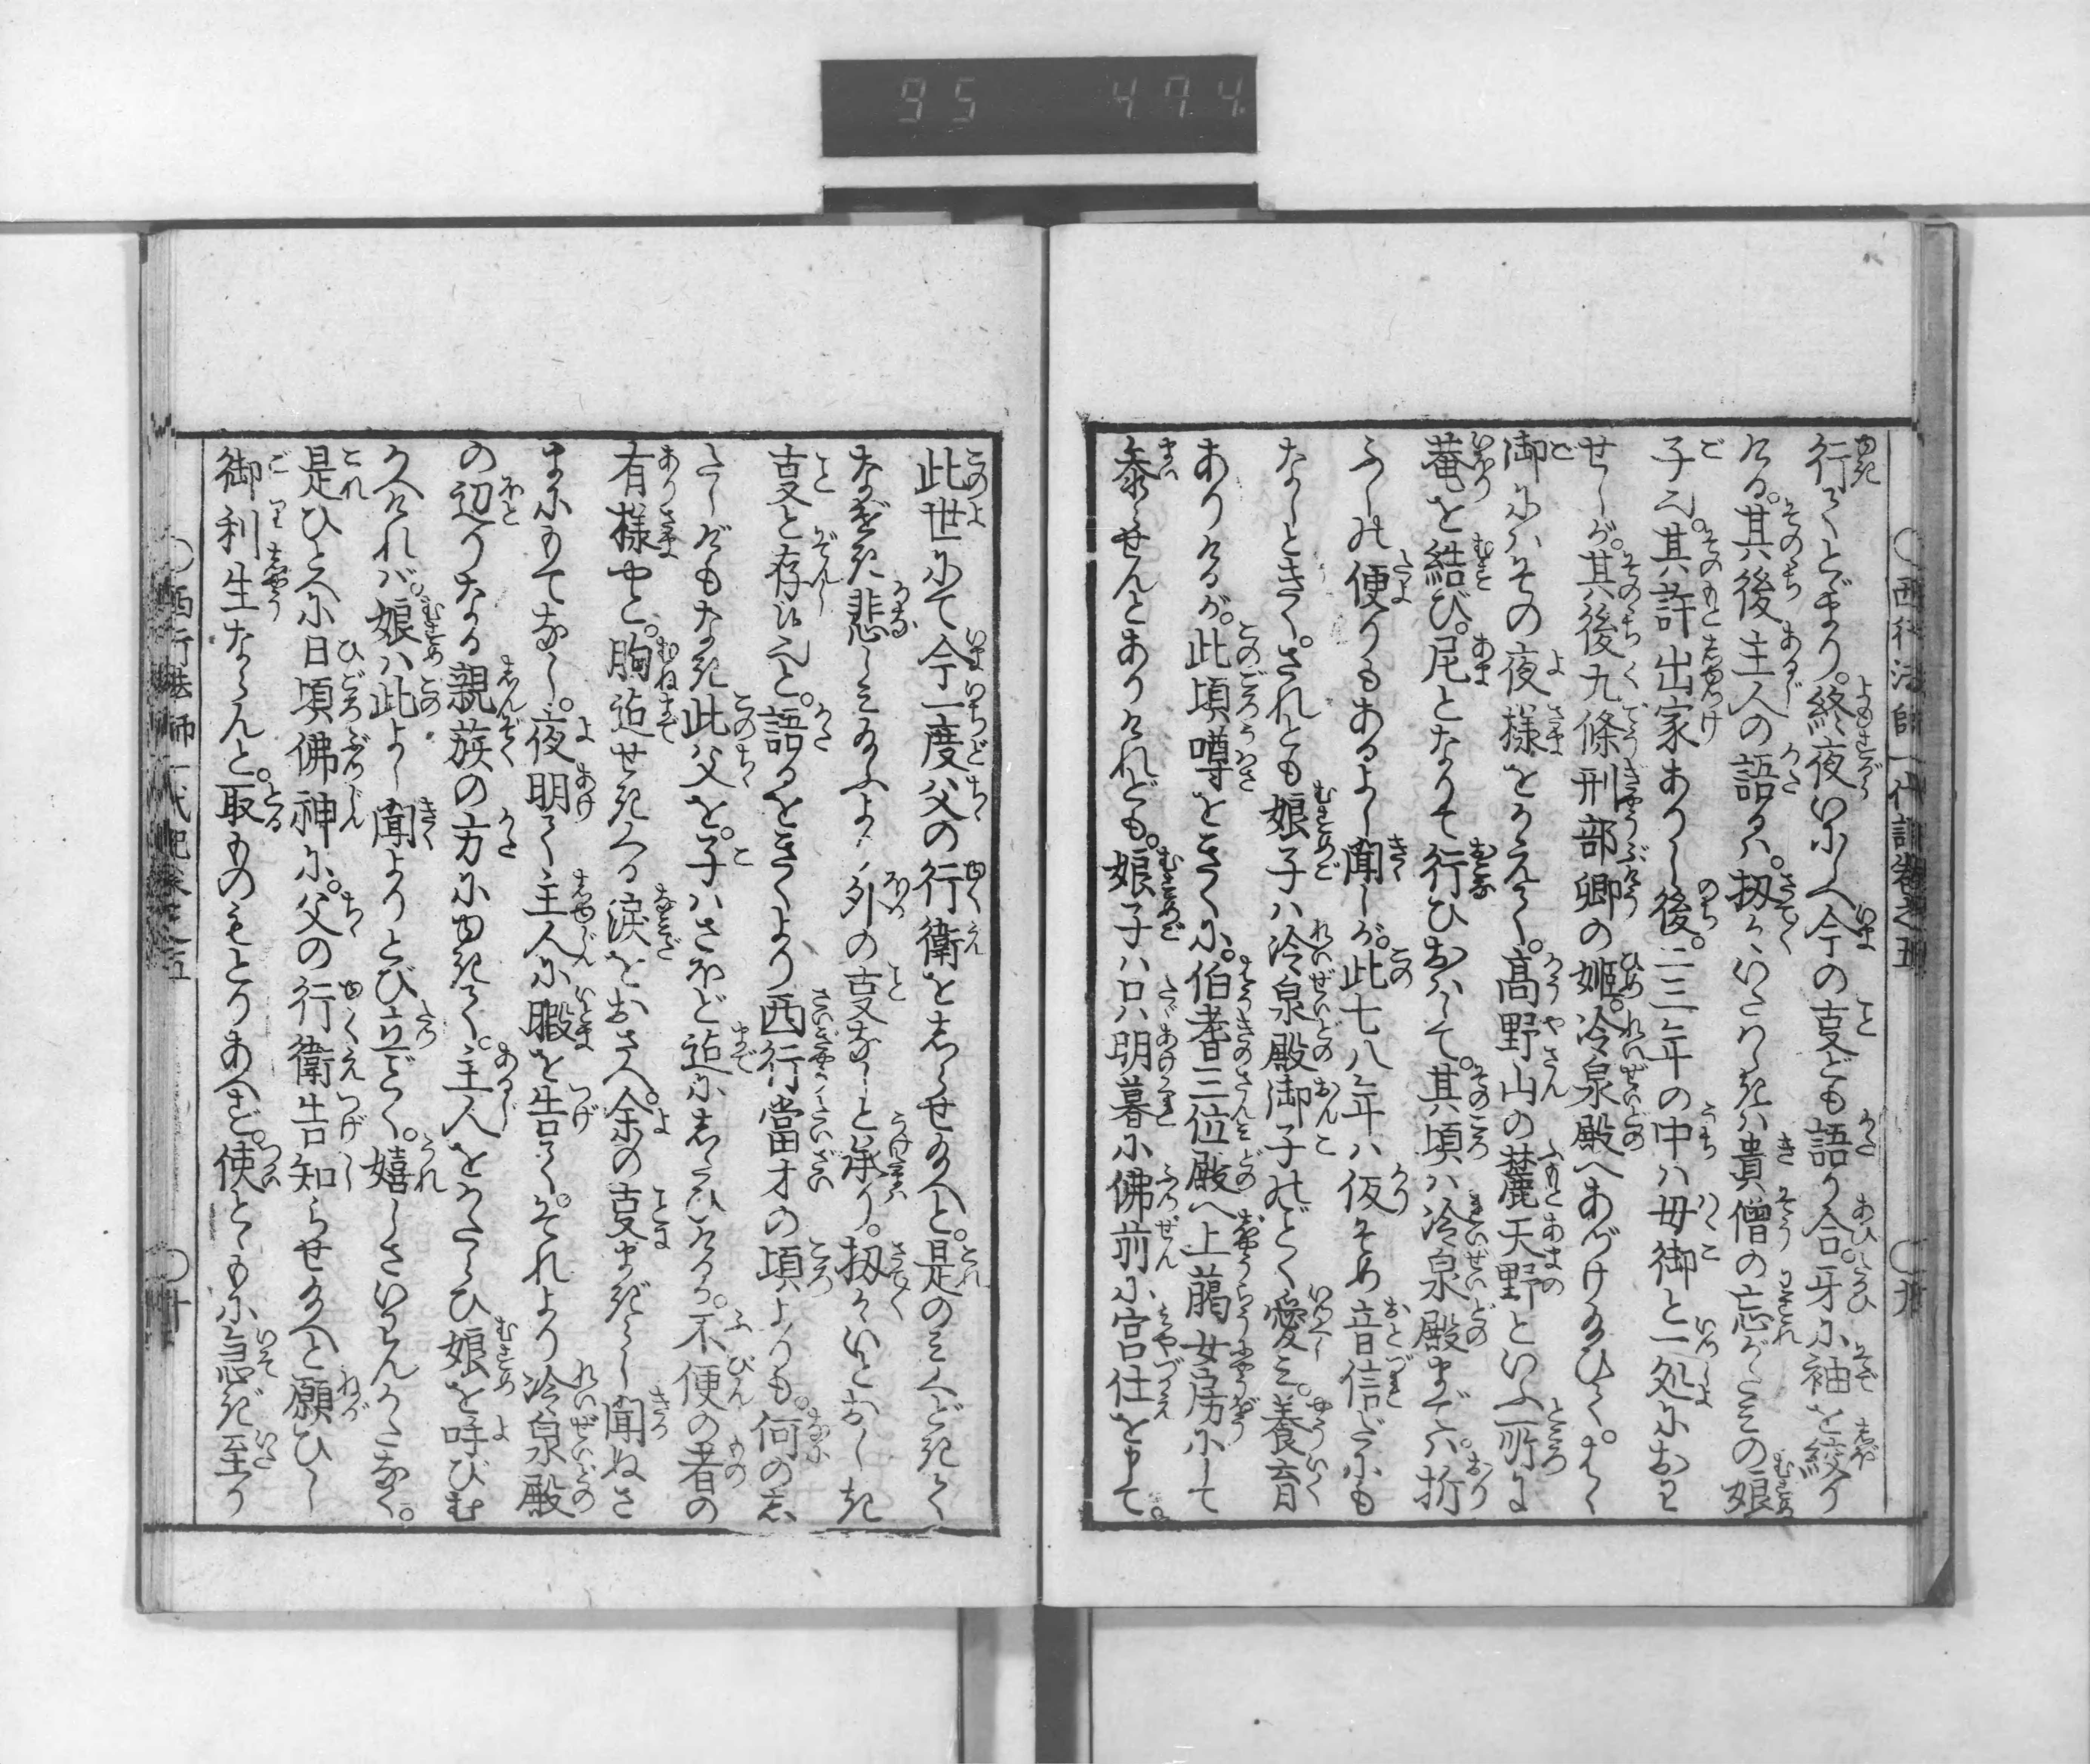 95 474
○西行法師一代記巻之五
○九
行てとゞまり。終夜いにしへ今の叓ども語り合。牙に袖を絞り
ける。其後主人の語るハ。扨々いたはしきハ貴僧の忘がたミの娘
子ニ。其許出家ありし後。二三年の中ハ母御と一処におわ
せしが。其後九條刑部卿の姫。冷泉殿へあづけ給ひて。はゝ
御にハその夜様をかえて。高野山の麓天野といふ所に
菴を結び。尼となりて行ひおハそて。其頃ハ冷泉殿までハ。折
ふしの便りもあるよし聞しが。此七八年ハ仮そめ音信だにも
なしときく。されとも娘子ハ冷泉殿御子のごとく愛ミ。養育
ありけるが。此頃噂をきくに。伯耆三位殿へ上臈女房にして
参らせんとありけれども。娘子ハ只明暮に佛前に宮仕を申て。
此世にて今一度父の行衛をしらせ給へと。是のミなげきて
なげき悲しミ給ふより外の叓なしと承り。扨々いとおしき
叓と存候と。語るをきくより西行當才の頃よりも。何のゑ
たしげもなき此父を。子ハさほど迄にしたひけるか。不便の者の
有様やと。胸迄せきくる涙をおさへ。余の叓まぎらし聞ぬさ
まにもてなし。夜明て主人に暇を告て。それより冷泉殿
の辺りなる親族の方にゆきて。主人をかたらひ娘を呼びむ
かへけれバ。娘ハ此よし聞よりとび立ごく。嬉しさいわんかたなく。
是ひとへに日頃佛神に。父の行衛告知らせ給へと願ひし
御利生ならんと。取ものもとりあへず。使とゝもに急ぎ至り
○西行法師一代記巻之五
○十